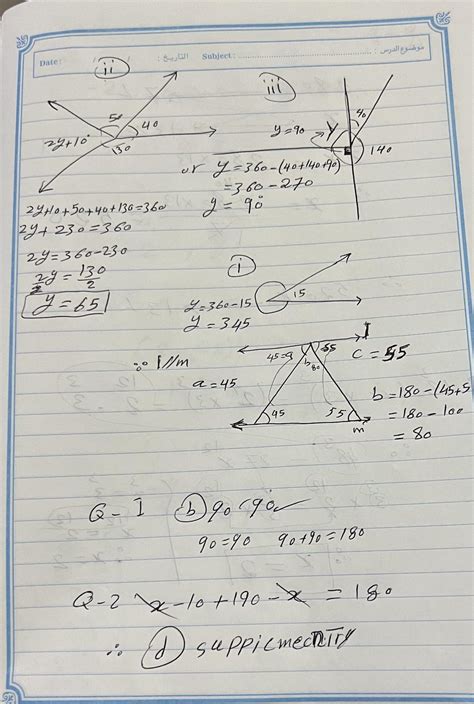 Date: التاريخ : Subject: موضوع الدرس :
ii
50
40
2y+10°
130
2y+10+50+40+130=360
2y+230=360
2y=360-230
2y = 130
2 2
y = 65
iii
40
y=90
y
140
or y = 360-(40+140+90)
= 360-270
y = 90°
i
15
y=360-15
y = 345
∵ l//m
l
45=a
b
80
55
c = 55
a = 45
45
55
m
b = 180-(45+5
= 180-100
= 80
Q-1 b 90° 90°
90=90 90+90=180
Q-2 x-10+190-x = 180
∴ d suppicmentry